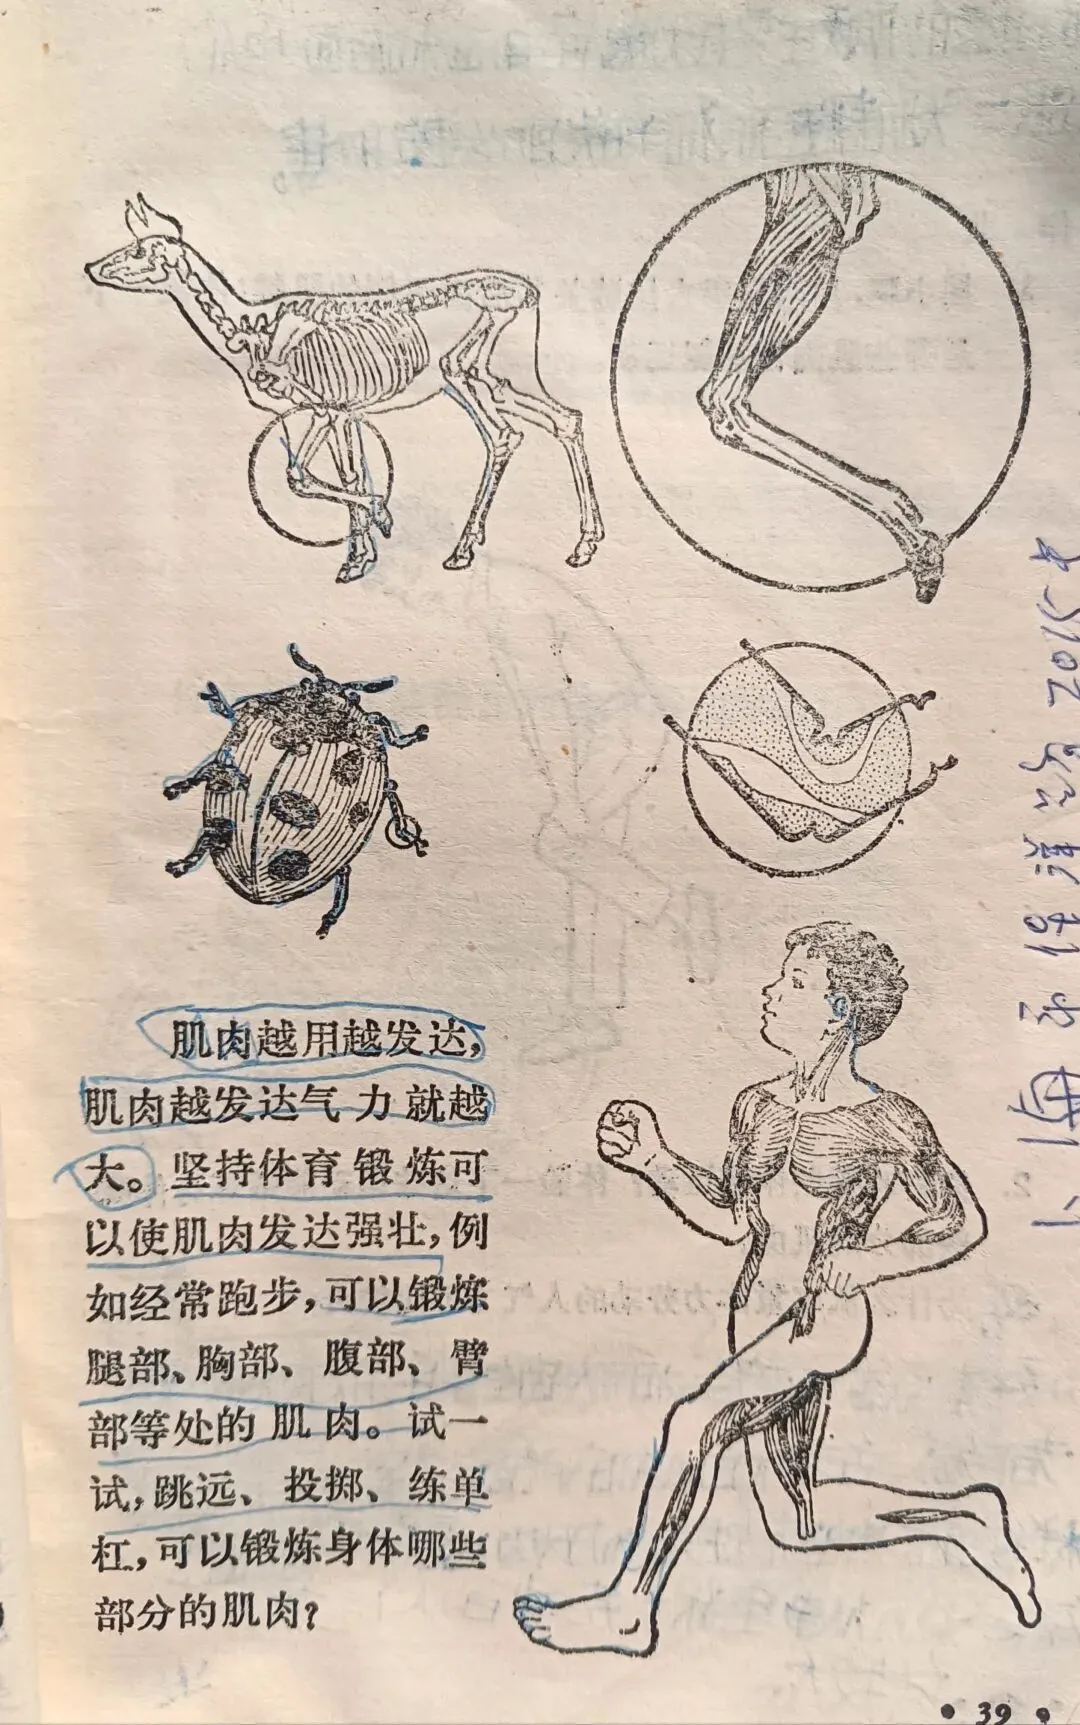 肌肉越用越发达,
肌肉越发达气力就越
大。坚持体育锻炼可
以使肌肉发达强壮,例
如经常跑步,可以锻炼
腿部、胸部、腹部、臂
部等处的肌肉。试一
试,跳远、投掷、练单
杠,可以锻炼身体哪些
部分的肌肉?
• 39 •